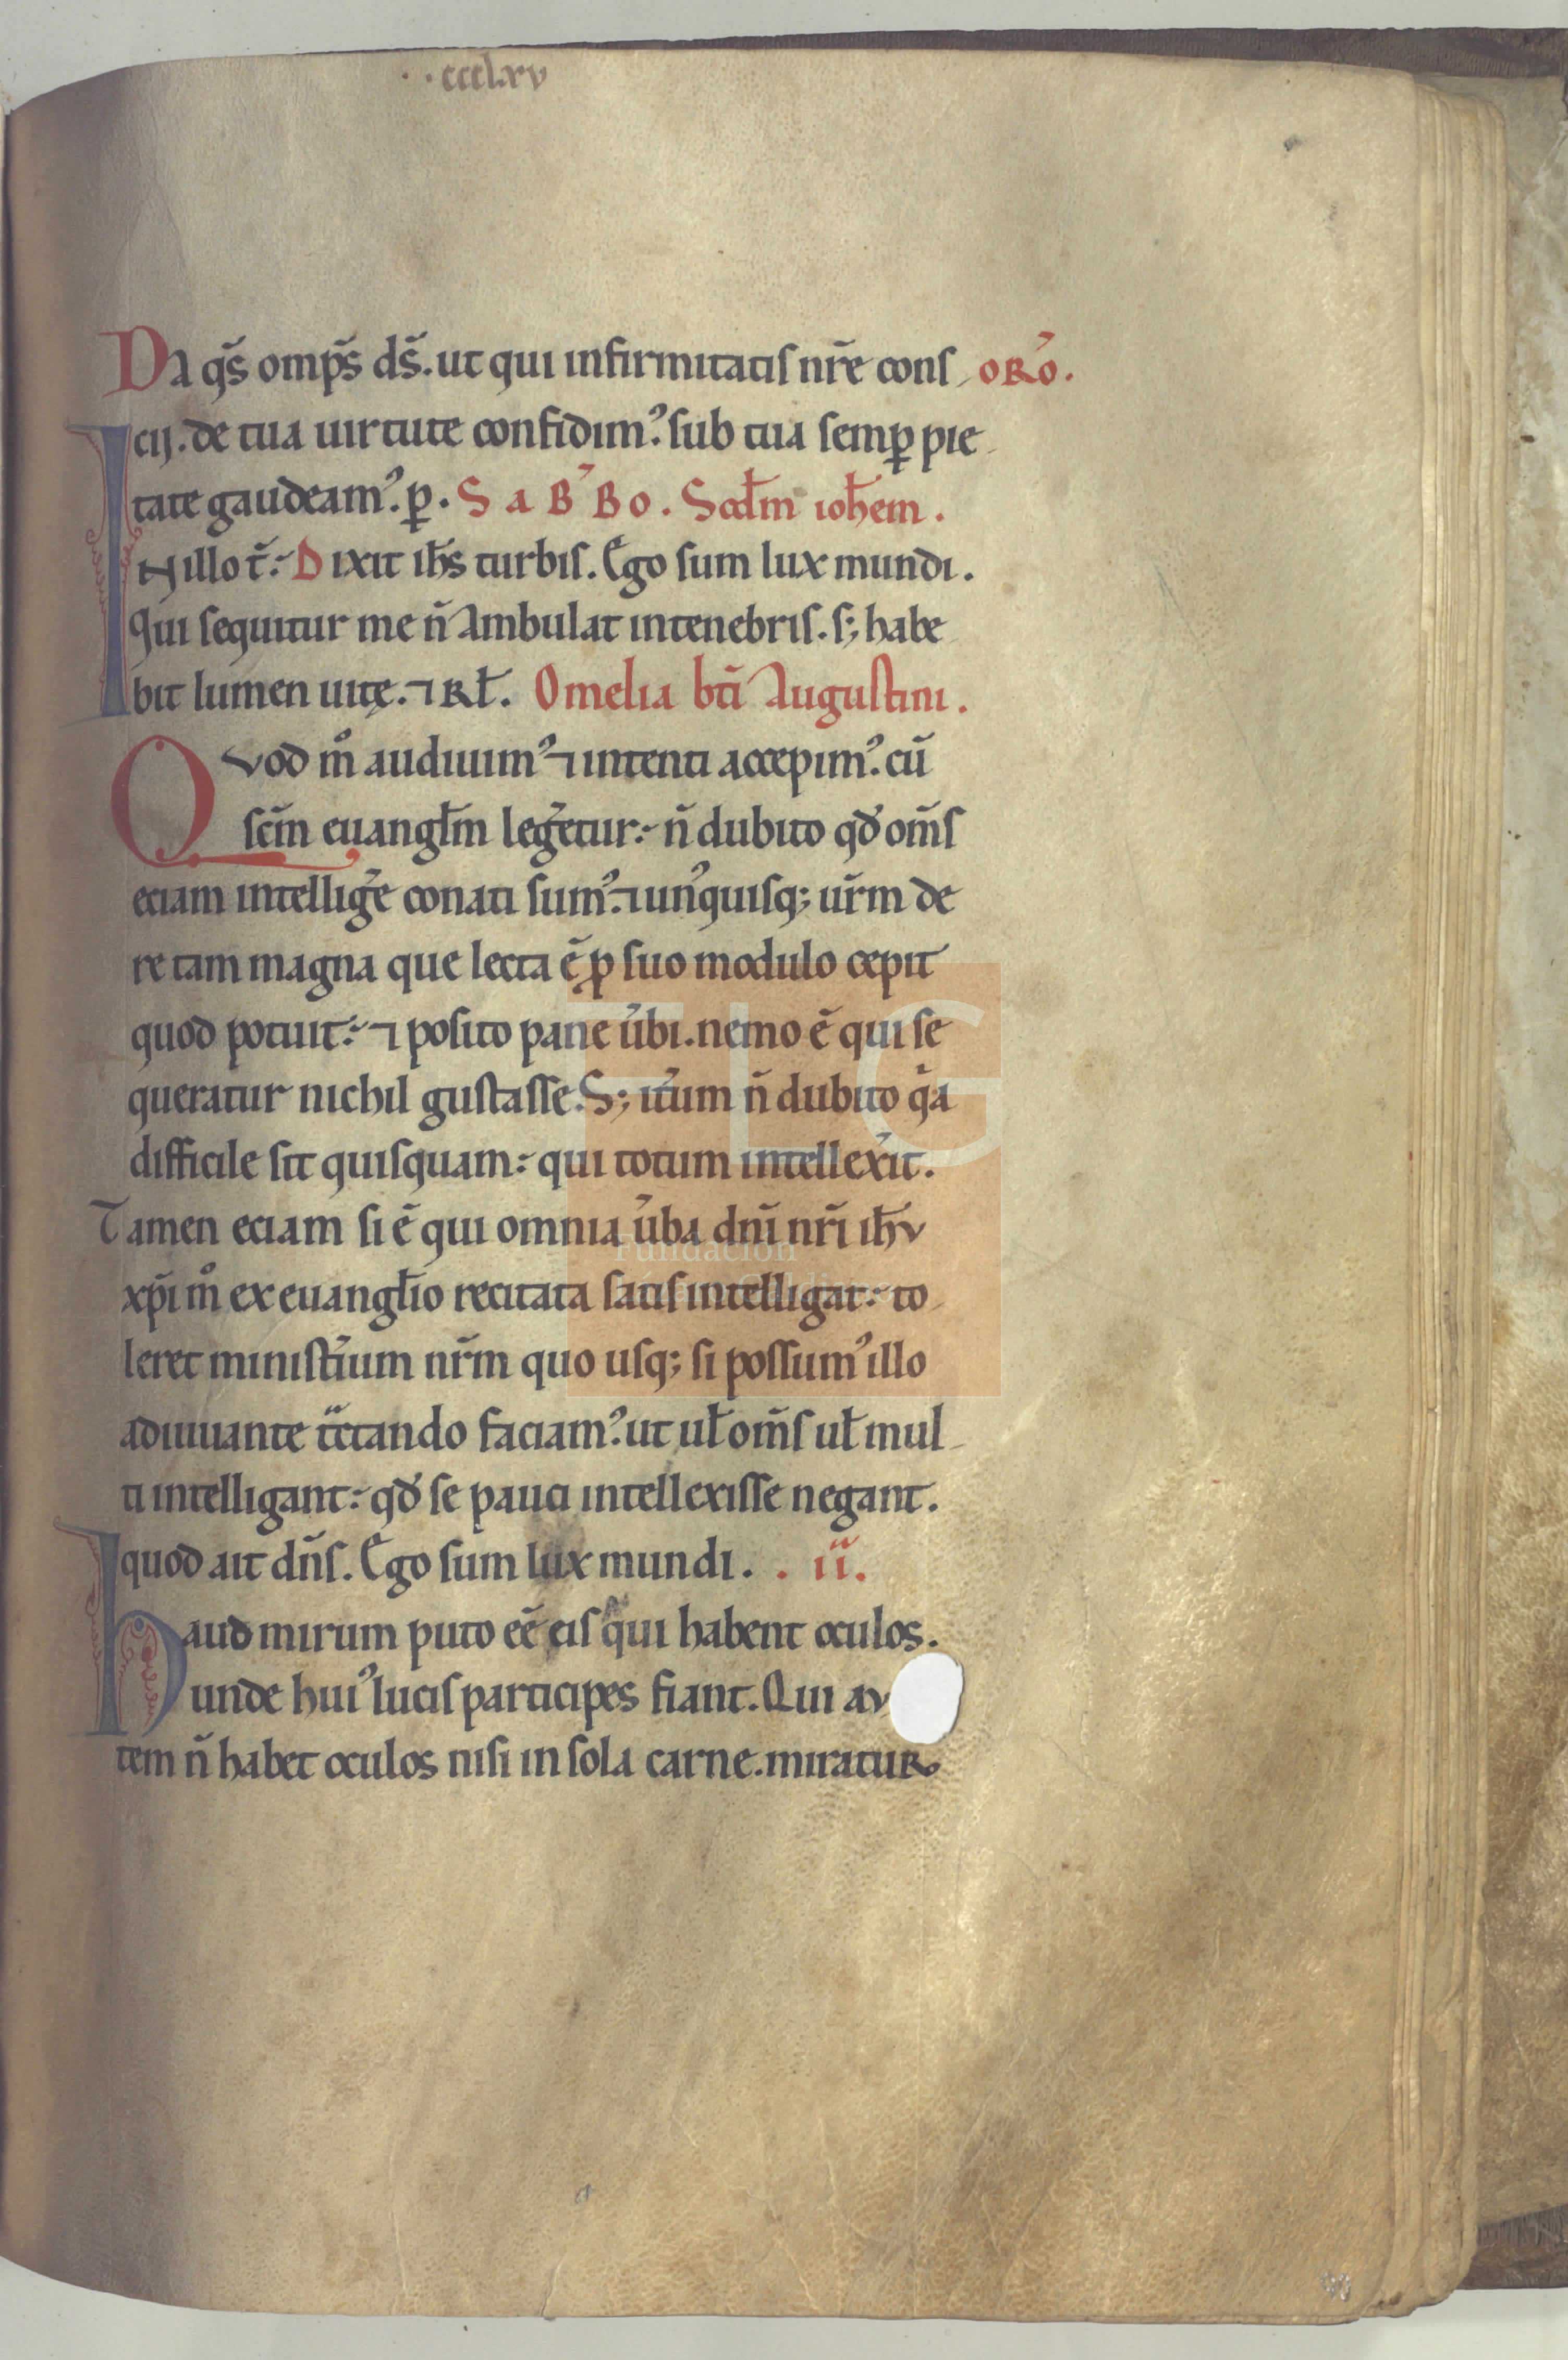 ccclxv
Da q̄s omp̄s ds̄. ut qui infirmitatis nr̄e cons oRō.
cij. de tua uirtute confidim᾿. sub tua semꝑ pie
tate gaudeam᾿. ꝑ. SaB᾿Bo. Scd̄m ioh̄em.
IN illo t̄. Dixit ih̄s turbis. Ego sum lux mundi.
Qui sequitur me n̄ Ambulat in tenebris. s; habe
bit lumen uitę. ⁊ Rł. Omelia bt̄i Augustini.
Quod m̊ audiuim᾿ ⁊ intenti accepim᾿. cū
scm̄ euangłm leg̾etur. n̄ dubito qd᾿ om̄s
eciam intellig̾e conati sum᾿. ⁊ un᾿quisq; ur̄m de
re tam magna que lecta ē ꝓ suo modulo cepit
quod potuit. ⁊ posito pane u̾bi. nemo ē qui se
queratur nichil gustasse. S; it̾um n̄ dubito qa
difficile sit quisquam. qui totum intellex̾it.
Tamen eciam si ē qui omnia u̾ba dn̄i nr̄i ih̄u
xp̄i m̊ ex euangłio recitata satis intelligat. to
leret minist̾ium nr̄m quo usq; si possum᾿ illo
adiuuante tctando faciam᾿. ut uł om̄s uł mul
ti intelligant. qd᾿ se pauci intellexisse negant.
quod ait dn̄s. Ego sum lux mundi. . ii.
Haud mirum puto eē eis qui habent oculos.
unde hui᾿ lucis participes fiant. Qui au
tem n̄ habet oculos nisi in sola carne. miratuR
FLG
Fundación